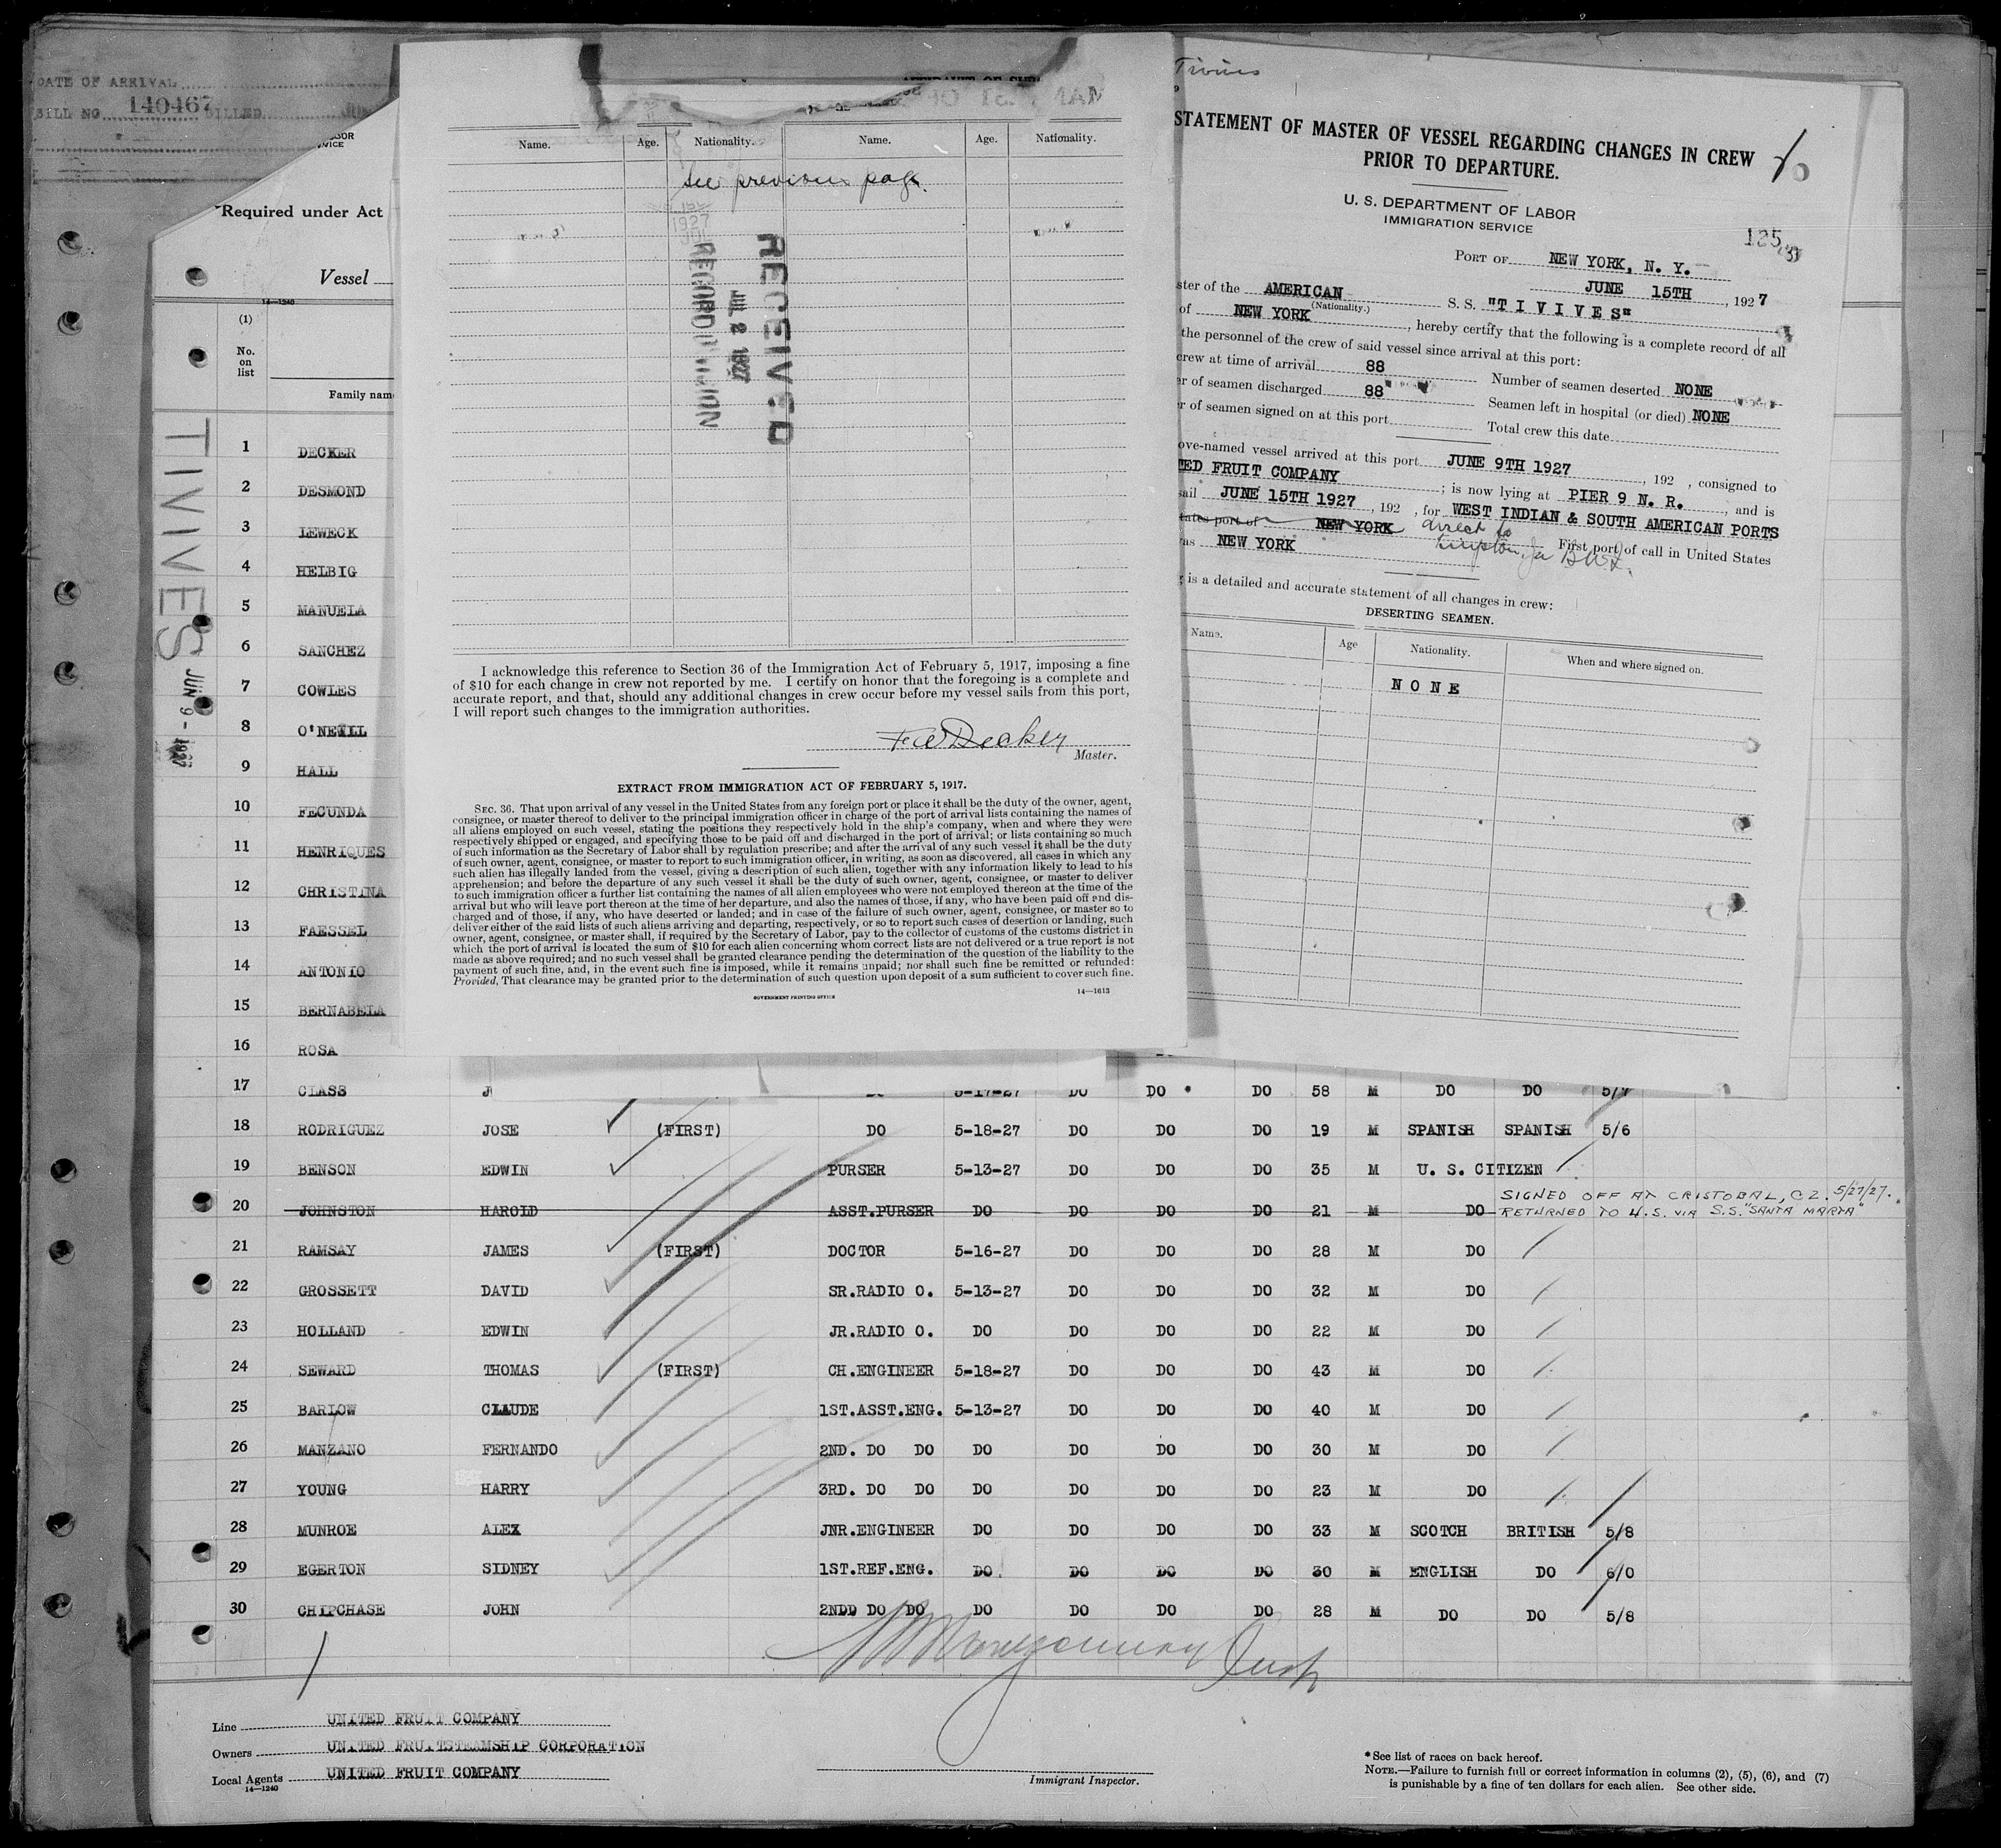 DATE OF ARRIVAL
BILL NO. 140467 BILLED JUN
Required under Act
Vessel
14—1240
(1)
No.
on
list
Family nam
TIVIVES JUN 9 - 1927
1 DECKER
2 DESMOND
3 LEWECK
4 HELBIG
5 MANUELA
6 SANCHEZ
7 COWLES
8 O'NEILL
9 HALL
10 FECUNDA
11 HENRIQUES
12 CHRISTINA
13 FAESSEL
14 ANTONIO
15 BERNABELA
16 ROSA
Name. Age. Nationality. Name. Age. Nationality.
See previous page.
RECEIVED
JUL 2 1927
RECORD DIVISION
I acknowledge this reference to Section 36 of the Immigration Act of February 5, 1917, imposing a fine
of $10 for each change in crew not reported by me. I certify on honor that the foregoing is a complete and
accurate report, and that, should any additional changes in crew occur before my vessel sails from this port,
I will report such changes to the immigration authorities.
F W Decker
Master.
EXTRACT FROM IMMIGRATION ACT OF FEBRUARY 5, 1917.
SEC. 36. That upon arrival of any vessel in the United States from any foreign port or place it shall be the duty of the owner, agent,
consignee, or master thereof to deliver to the principal immigration officer in charge of the port of arrival lists containing the names of
all aliens employed on such vessel, stating the positions they respectively hold in the ship's company, when and where they were
respectively shipped or engaged, and specifying those to be paid off and discharged in the port of arrival; or lists containing so much
of such information as the Secretary of Labor shall by regulation prescribe; and after the arrival of any such vessel it shall be the duty
of such owner, agent, consignee, or master to report to such immigration officer, in writing, as soon as discovered, all cases in which any
such alien has illegally landed from the vessel, giving a description of such alien, together with any information likely to lead to his
apprehension; and before the departure of any such vessel it shall be the duty of such owner, agent, consignee, or master to deliver
to such immigration officer a further list containing the names of all alien employees who were not employed thereon at the time of the
arrival but who will leave port thereon at the time of her departure, and also the names of those, if any, who have been paid off and dis-
charged and of those, if any, who have deserted or landed; and in case of the failure of such owner, agent, consignee, or master so to
deliver either of the said lists of such aliens arriving and departing, respectively, or so to report such cases of desertion or landing, such
owner, agent, consignee, or master shall, if required by the Secretary of Labor, pay to the collector of customs of the customs district in
which the port of arrival is located the sum of $10 for each alien concerning whom correct lists are not delivered or a true report is not
made as above required; and no such vessel shall be granted clearance pending the determination of the question of the liability to the
payment of such fine, and, in the event such fine is imposed, while it remains unpaid; nor shall such fine be remitted or refunded:
Provided, That clearance may be granted prior to the determination of such question upon deposit of a sum sufficient to cover such fine.
GOVERNMENT PRINTING OFFICE 14—1613
Tivives
STATEMENT OF MASTER OF VESSEL REGARDING CHANGES IN CREW
PRIOR TO DEPARTURE.
U. S. DEPARTMENT OF LABOR
IMMIGRATION SERVICE
125
PORT OF NEW YORK, N. Y.
JUNE 15TH, 1927
ster of the AMERICAN S. S. "TIVIVES"
(Nationality.)
of NEW YORK, hereby certify that the following is a complete record of all
the personnel of the crew of said vessel since arrival at this port:
crew at time of arrival 88 Number of seamen deserted NONE
er of seamen discharged 88 Seamen left in hospital (or died) NONE
er of seamen signed on at this port Total crew this date
ove-named vessel arrived at this port JUNE 9TH 1927, 192 , consigned to
TED FRUIT COMPANY ; is now lying at PIER 9 N. R., and is
sail JUNE 15TH 1927, 192 , for WEST INDIAN & SOUTH AMERICAN PORTS
tates port of NEW YORK direct to
Kingston, Ja B.W.I. First port of call in United States
as NEW YORK
g is a detailed and accurate statement of all changes in crew:
DESERTING SEAMEN.
Name. Age Nationality. When and where signed on.
NONE
17 CLASS J 5-17-27 DO DO DO 58 M DO DO 5/7
18 RODRIGUEZ JOSE (FIRST) DO 5-18-27 DO DO DO 19 M SPANISH SPANISH 5/6
19 BENSON EDWIN PURSER 5-13-27 DO DO DO 35 M U. S. CITIZEN
SIGNED OFF AT CRISTOBAL, C Z. 5/27/27.
20 JOHNSTON HAROLD ASST.PURSER DO DO DO DO 21 M DO RETURNED TO U.S. VIA S.S. "SANTA MARTA"
21 RAMSAY JAMES (FIRST) DOCTOR 5-16-27 DO DO DO 28 M DO
22 GROSSETT DAVID SR.RADIO O. 5-13-27 DO DO DO 32 M DO
23 HOLLAND EDWIN JR.RADIO O. DO DO DO DO 22 M DO
24 SEWARD THOMAS (FIRST) CH.ENGINEER 5-18-27 DO DO DO 43 M DO
25 BARLOW CLAUDE 1ST.ASST.ENG. 5-13-27 DO DO DO 40 M DO
26 MANZANO FERNANDO 2ND. DO DO DO DO DO DO 30 M DO
27 YOUNG HARRY 3RD. DO DO DO DO DO DO 23 M DO
28 MUNROE ALEX JNR.ENGINEER DO DO DO DO 33 M SCOTCH BRITISH 5/8
29 EGERTON SIDNEY 1ST.REF.ENG. DO DO DO DO 30 M ENGLISH DO 6/0
30 CHIPCHASE JOHN 2NDD DO DO DO DO DO DO 28 M DO DO 5/8
Montgomery
Line UNITED FRUIT COMPANY
Owners UNITED FRUITSTEAMSHIP CORPORATION
Local Agents UNITED FRUIT COMPANY
14—1240
Immigrant Inspector.
*See list of races on back hereof.
NOTE.—Failure to furnish full or correct information in columns (2), (5), (6), and (7)
is punishable by a fine of ten dollars for each alien. See other side.